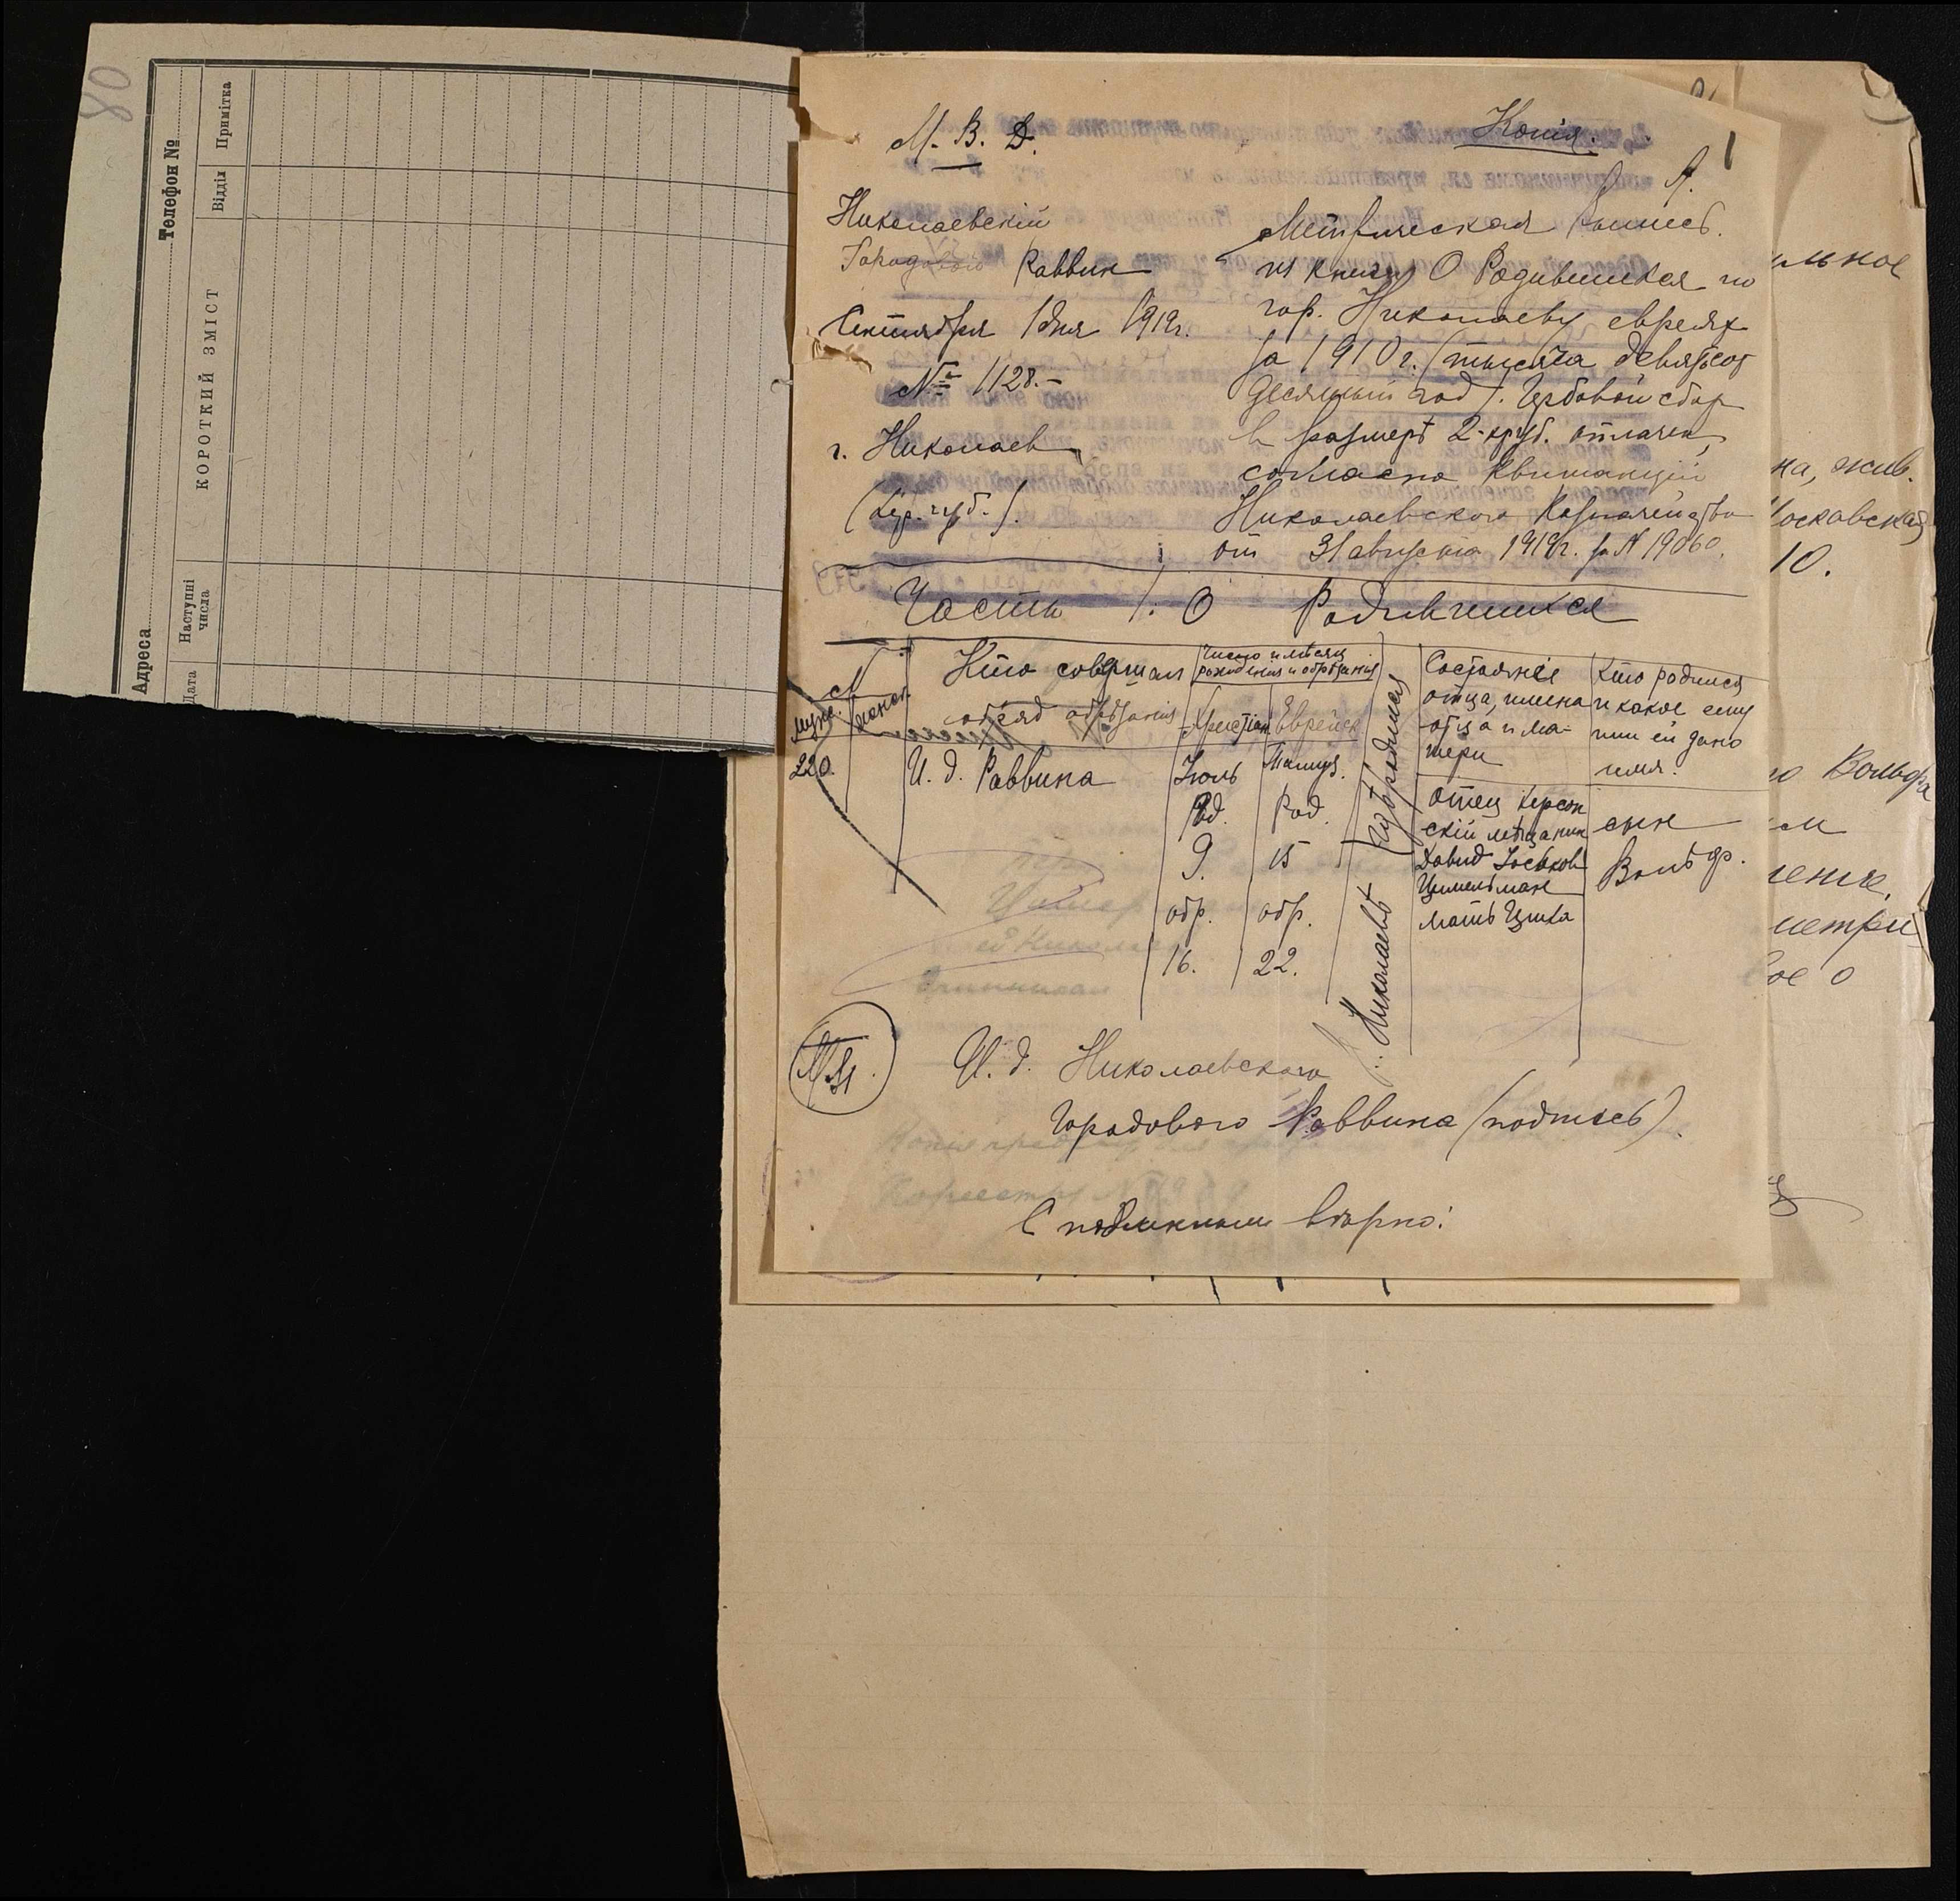 80
Адреса
Телефон №
Дата
Наступні числа
КОРОТКИЙ ЗМІСТ
Відділ
Примітка
М. В. Д.
Николаевскій
Городовой Раввин
Сентября 1 дня 1919г.
№ 1128.-
г. Николаев
(Хер. губ.).
Копія.
1
Метрическая выпись.
из книги О Родившихся по
гор. Николаеву евреях
за 1910 г. (тысяча девятьсот
десятый год). Гербовой сбор
в размерѣ 2-х руб. оплачен,
согласно квитанціи
Николаевского Казначейства
от 31 августа 1919г. за № 19060.
Часть 1. О Родившихся
№
мужс.
женск.
Кто совершал
обряд обрѣзанія
Число и мѣсяц
рождения и обрѣзания
Христіан
Еврейск
Гдѣ родился
Состояніе
отца, имена
отца и ма-
тери
Кто родился
и какое ему
или ей дано
имя.
220.
И. д. Раввина
Іюль
Род.
9.
обр.
16.
Тамуз.
Род.
15
обр.
22.
г. Николаевѣ
отец Херсон
скій мѣщанин
Давид Іоськов
Цимельман
мать Цика
сын
Вольф.
И. д. Николаевского
Городового Раввина (подпись).
С подлинным вѣрно:
льное
на, жив.
Московская
10.
Вольфа
10